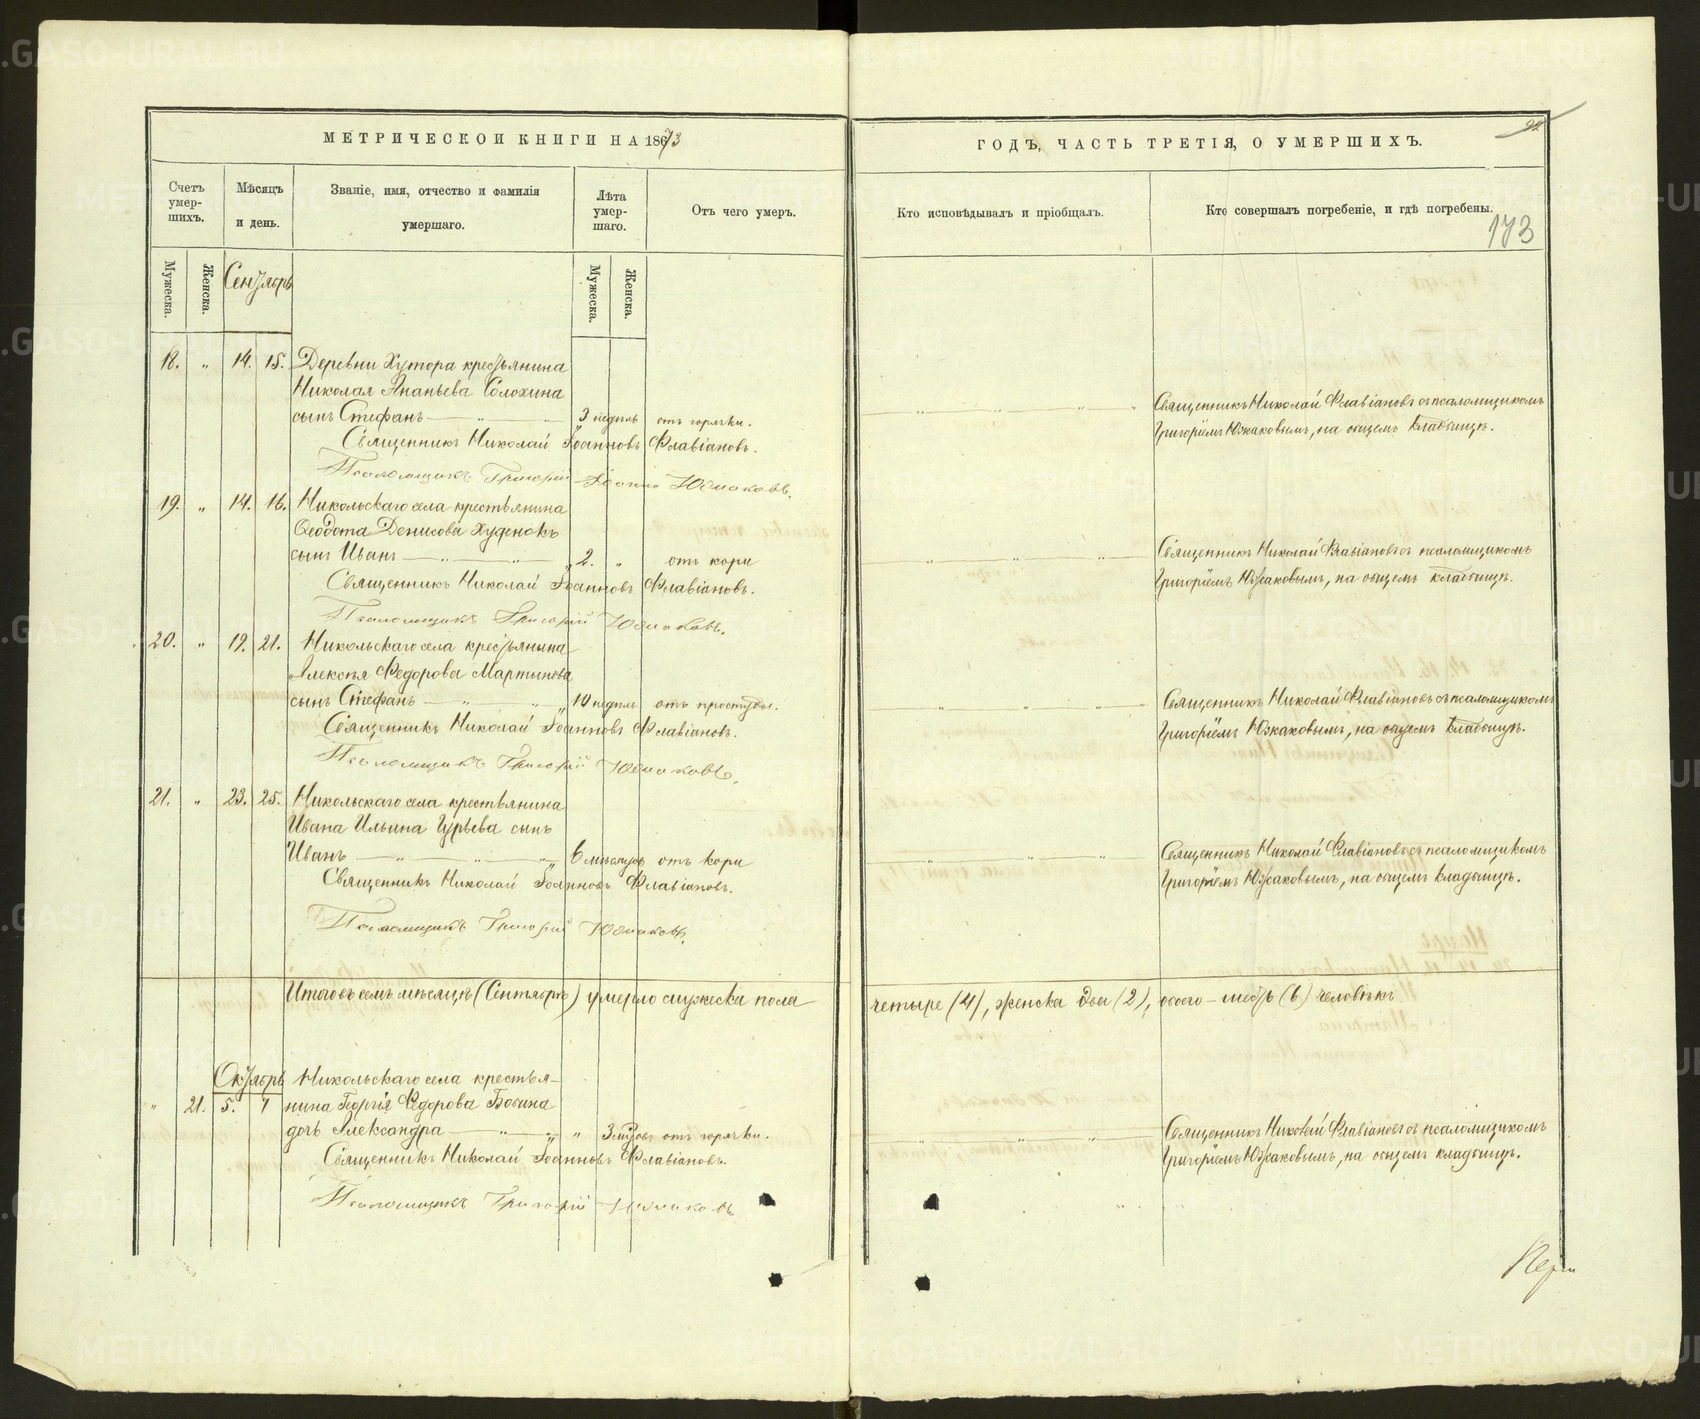 МЕТРИЧЕСКОЙ КНИГИ НА 1873
ГОДЪ, ЧАСТЬ ТРЕТІЯ, О УМЕРШИХЪ.
Счетъ умер-шихъ.
Мѣсяцъ и день.
Званіе, имя, отчество и фамилія умершаго.
Лѣта умер-шаго.
Отъ чего умеръ.
Кто исповѣдывалъ и пріобщалъ.
Кто совершалъ погребеніе, и гдѣ погребены.
173
Мужеска.
Женска.
Сентябрь
Мужеска.
Женска.
18. „ 14. 15. Деревни Хутора крестьянина
Николая Ананьева Солохина
сынъ Стефанъ — „ — 3 недѣль отъ горячки.
Священникъ Николай Іоанновъ Флавіановъ.
Псаломщикъ Григорій Южаковъ.
Священникъ Николай Флавіановъ съ псаломщикомъ
Григоріемъ Южаковымъ, на общемъ кладбищѣ.
19. „ 14. 16. Никольскаго села крестьянина
Ѳеодота Денисова
сынъ Иванъ — „ — „ — 2. „ отъ кори
Священникъ Николай Іоанновъ Флавіановъ.
Псаломщикъ Григорій Южаковъ.
Священникъ Николай Флавіановъ съ псаломщикомъ
Григоріемъ Южаковымъ, на общемъ кладбищѣ.
20. „ 19. 21. Никольскаго села крестьянина
Алексѣя Федорова Мартынова
сынъ Стефанъ — „ — „ 10 недѣль отъ простуды.
Священникъ Николай Іоанновъ Флавіановъ.
Псаломщикъ Григорій Южаковъ.
Священникъ Николай Флавіановъ съ псаломщикомъ
Григоріемъ Южаковымъ, на общемъ кладбищѣ.
21. „ 23. 25. Никольскаго села крестьянина
Ивана Ильина Гурьева сынъ
Иванъ — „ — „ — 6 мѣсяцовъ отъ кори
Священникъ Николай Іоанновъ Флавіановъ.
Псаломщикъ Григорій Южаковъ.
Священникъ Николай Флавіановъ съ псаломщикомъ
Григоріемъ Южаковымъ, на общемъ кладбищѣ.
Итого въ семъ мѣсяцѣ (Сентябрѣ) умерло мужеска пола
четыре (4), женска два (2), обоего – шесть (6) человѣкъ
Октябрь Никольскаго села крестья-
„ 21. 5. 7 нина Георгія Федорова
дочь Александра — „ — „ 3 отъ горячки.
Священникъ Николай Іоанновъ Флавіановъ.
Псаломщикъ Григорій Южаковъ
Священникъ Николай Флавіановъ съ псаломщикомъ
Григоріемъ Южаковымъ, на общемъ кладбищѣ.
METRIKI.GASO-URAL.RU